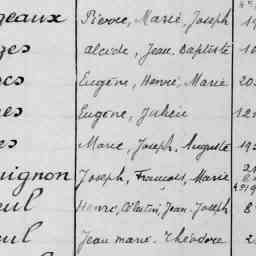 geaux Pierre, Marie, Joseph
Alcide, Jean Baptiste
Eugène, Henri, Marie 20
Eugène, Julien 12
Marie, Joseph, Auguste 19
uignon Joseph, François, Marie
eul Henri, Célestin, Jean, Joseph 8
eul Jean Marie, Théodore 2